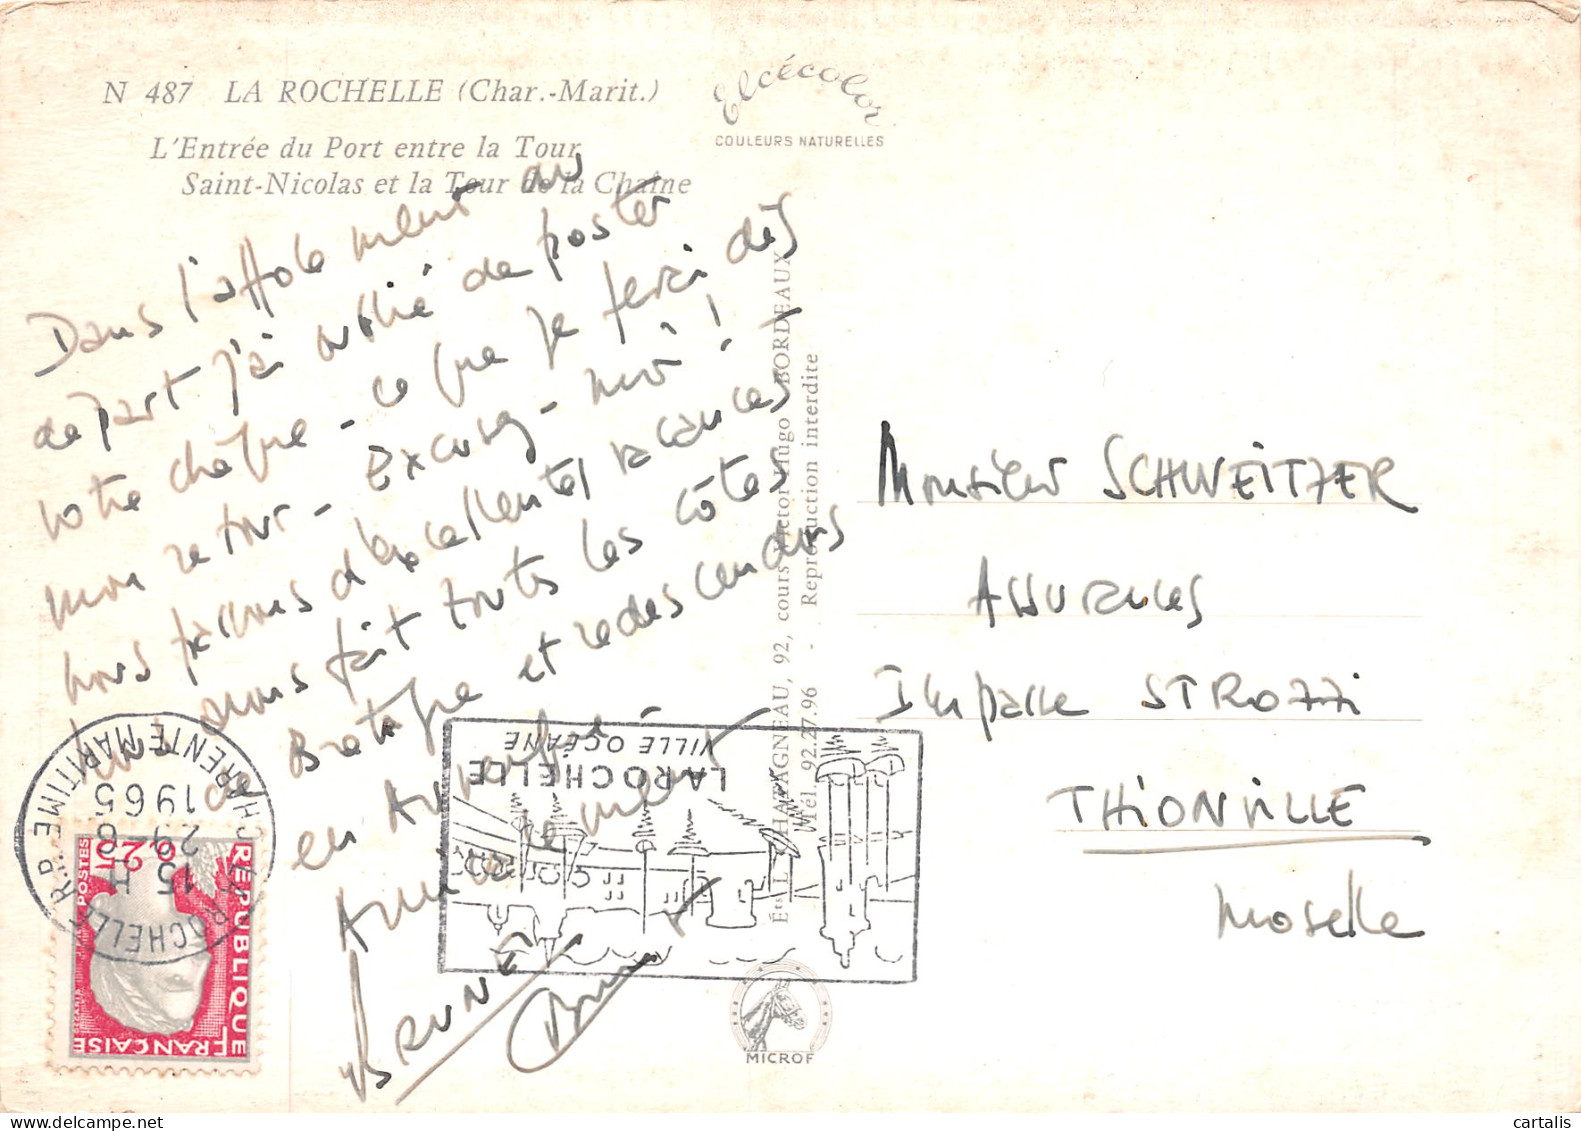 N 487 LA ROCHELLE (Char.-Marit.)
L'Entrée du Port entre la Tour
Saint-Nicolas et la Tour de la Chaîne
Elcécolor
COULEURS NATURELLES
Dans l'affolement au
départ j'ai oublié de poster
votre chèque - ce que je ferai dès
mon retour - Excusez-moi !
Nous passons d'excellentes vacances
nous fait toutes les côtes
de Bretagne et redescendons
en
Amicalement
BRUNÉ
Éts CHATAGNEAU, 92, cours Victor Hugo BORDEAUX
Tél. 92.27.96 - Reproduction interdite
MICROF
Monsieur SCHWEITZER
Assurances
Impasse STROZZI
THIONVILLE
Moselle
LA ROCHELLE
VILLE OCÉANE
LA ROCHELLE R.P.
CHARENTE MARITIME
15 H
29.8
1965
RÉPUBLIQUE
FRANÇAISE
POSTES
0,25
DECARIS
cartalis